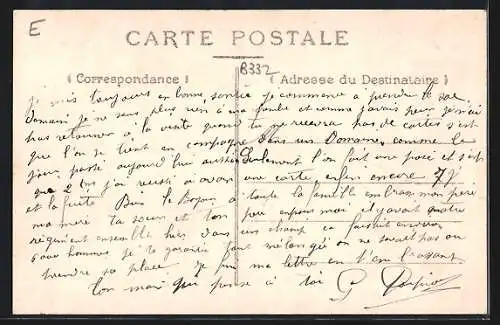 E
CARTE POSTALE
B332
Correspondance
Adresse du Destinataire
je suis toujours en bonne santée je commence a prendre le
demain je ne sens plus rien a ma jambe et comme j'avais peur
pas retourner a la visite quand tu ne recevra pas de cartes s'est
que l'on se tient en campagne dans un Domaine comme le
jour passé aujourd'hui aussi Seulement l'on fait une pose et s'est
que 2 j'ai réussi a avoir une carte enfin encore 7 j
et la fuite Bien le Bonjour a toute la famille embrasse mon père
ma mère ta soeur et ton père enfin moi il y avait quatre
régiment ensemble hier dans un champ ça faisait environ
6000 hommes je te garantie faut mélangé on ne savait pas ou
prendre sa place Je fini ma lettre en t'embrassant
Ton mari qui pense a toi G